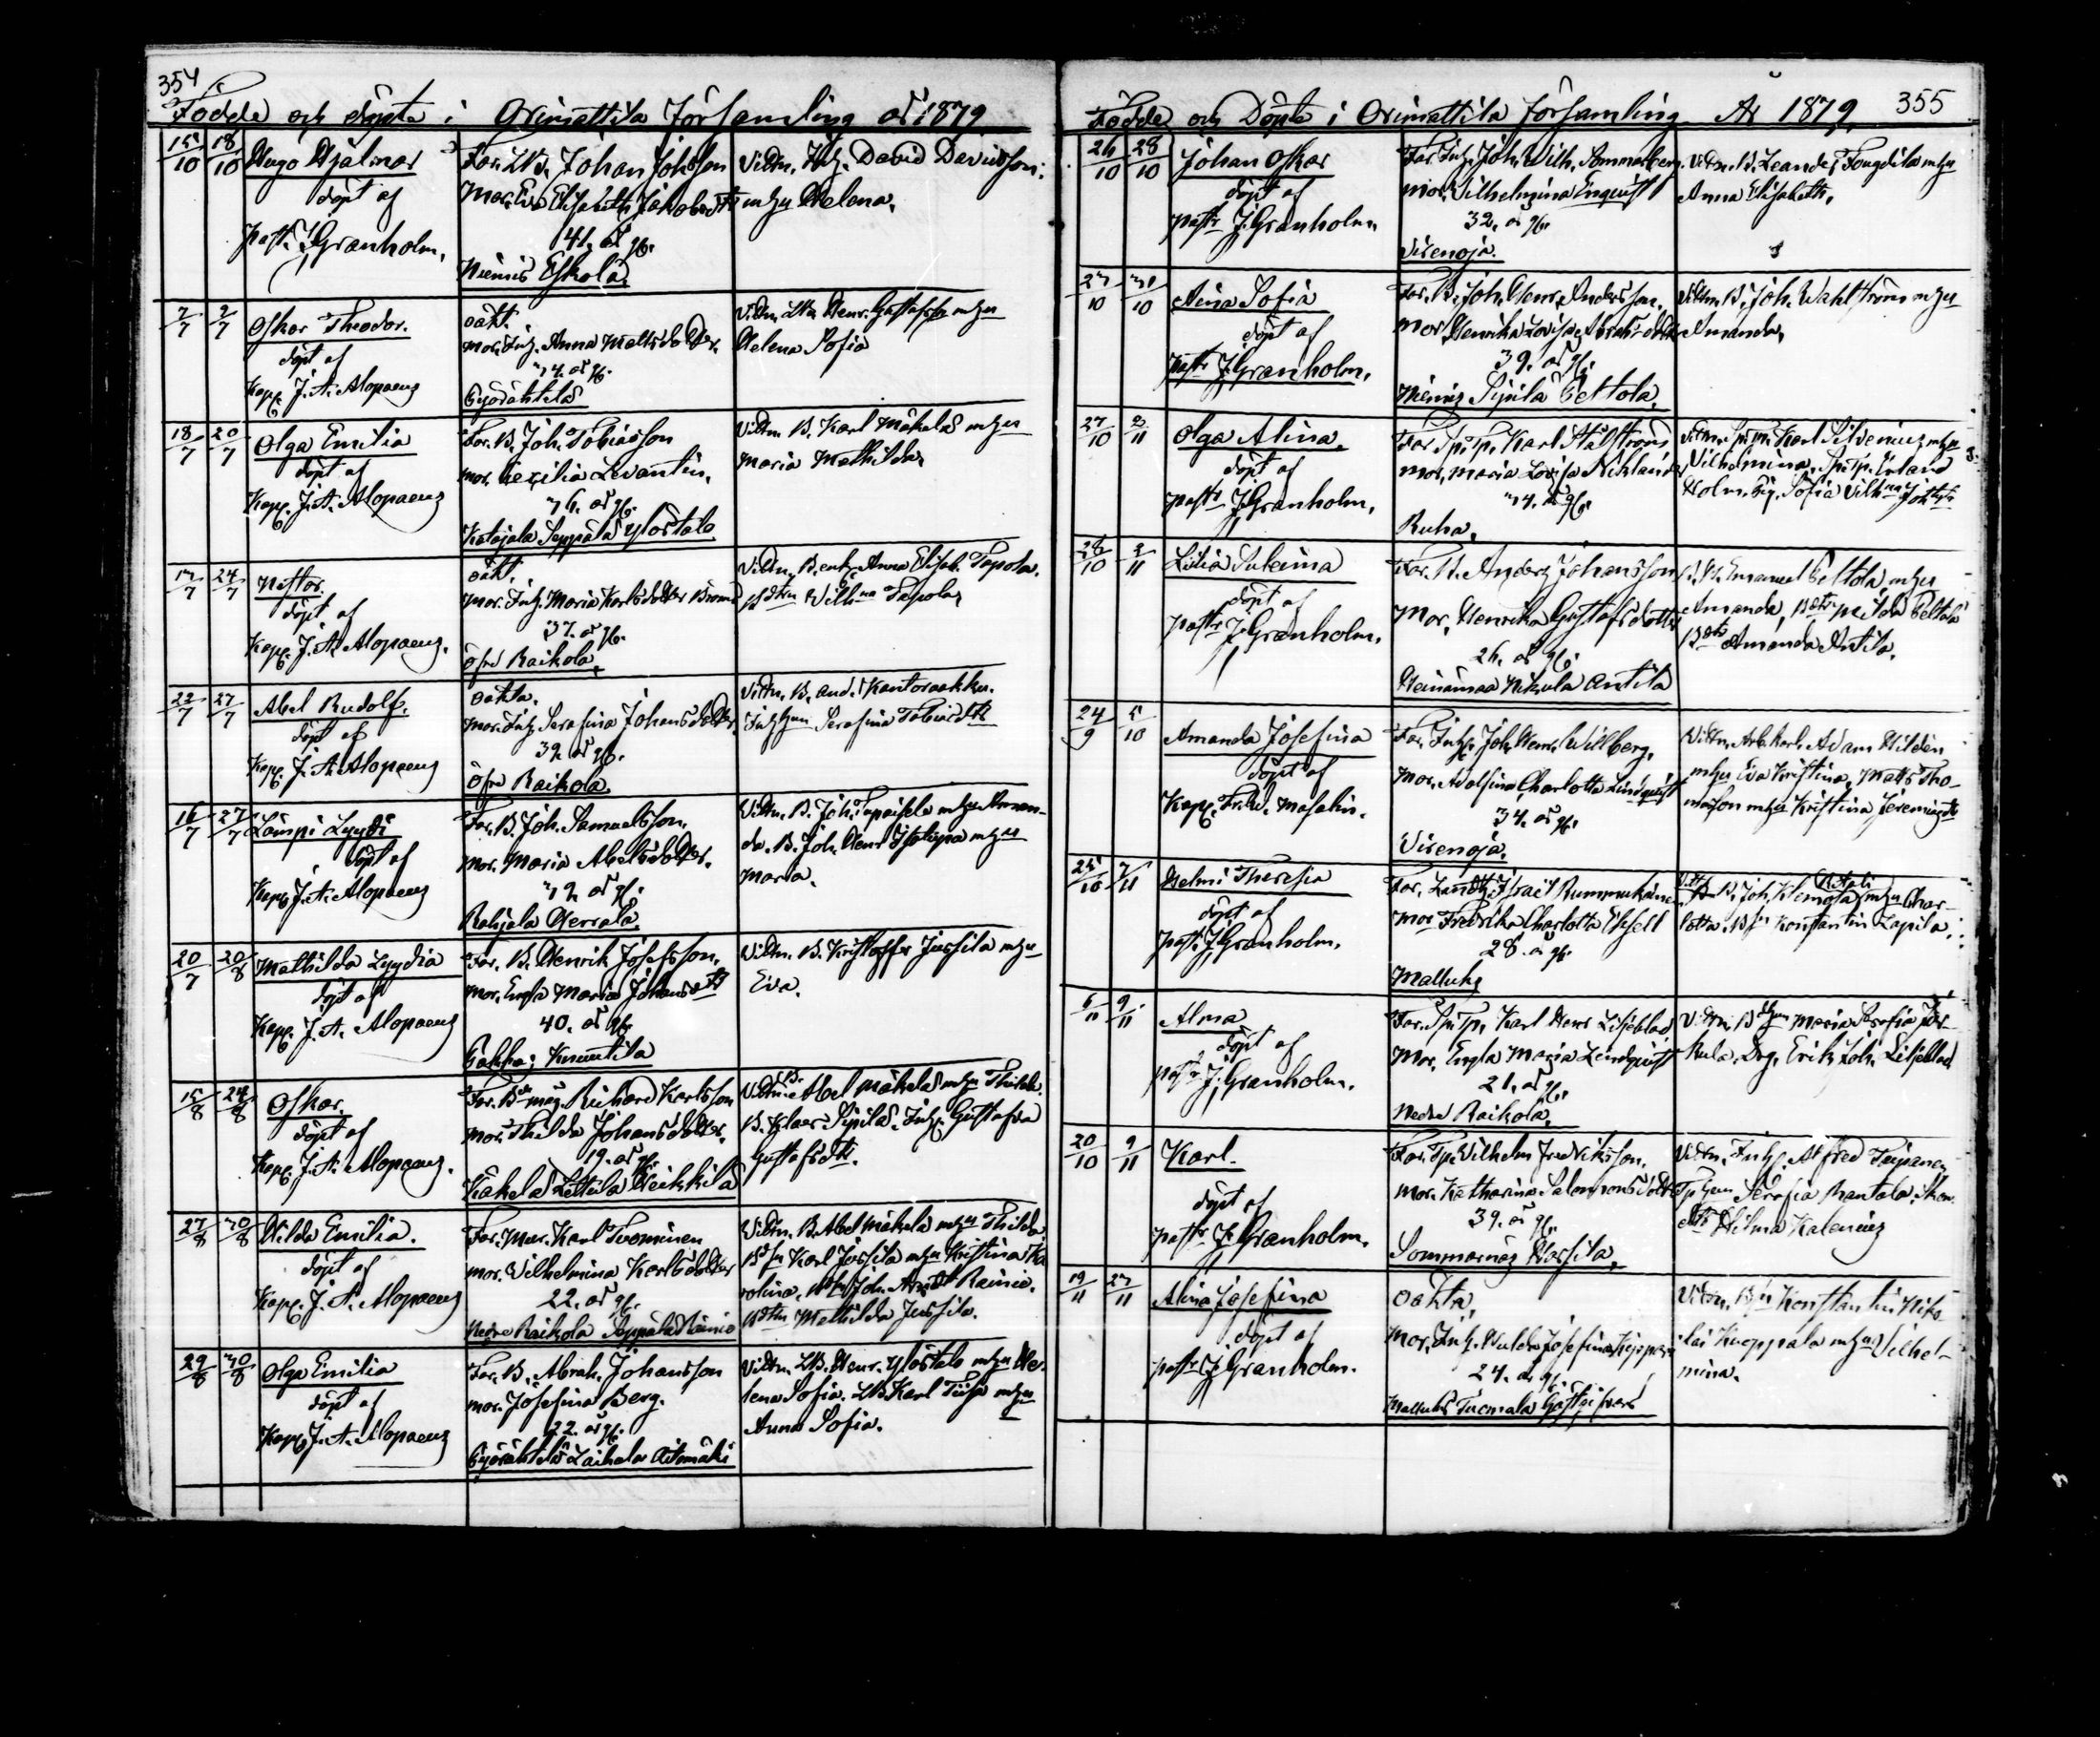 354
Födde och döpte i Orimattila församling år 1879
15/10 18/10 Hugo Hjalmar
döpt af
past. J. Granholm.
Far. LB. Johan Johansson
Mor. Eva Elisabeth Jakobsdtr
41. år gl.
Niemis Eskola
Vittn. Itg. David Davidsson
mhu Helena.
7/7 9/7 Oskar Theodor.
döpt af
Kapl. J. A. Alopaeus
oäkt.
mor. Inh. Anna Mattsdotter.
34. år gl.
Vittn. LB. Henr. Gustafss. mhu
Helena Sofia
18/7 20/7 Olga Emilia
döpt af
Kapl. J. A. Alopaeus
Far. B. Joh. Tobiasson
mor. Cecilia Levantin.
36. år gl.
Katajala Seppälä Ylöstalo
Vittn. B. Karl Mäkelä mhu
Maria Mathilda
13/7 24/7 Nestor.
döpt af
Kapl. J. A. Alopaeus.
oäkt.
mor. Inh. Maria Karlsdotter
37. år gl.
Öfre Raikola.
Vittn. B. enk. Anna Elisab. Tapola.
Bdtr Wilhna Tapola
22/7 27/7 Abel Rudolf.
döpt af
Kapl. J. A. Alopaeus
oäkta.
mor. Inh. Serafina Johansdotter
39. år gl.
Öfre Raikola.
Vittn. B. And. Kantoraakku.
Serafina Tobiasdtr
16/7 27/7 Lempi Lyydi
döpt af
Kapl. J. A. Alopaeus
Far. B. Joh. Samuelsson.
mor. Maria Abelsdotter.
32. år gl.
Vittn. B. Joh. mhu Aman-
da. B. Joh. Henr. mhu
Maria.
20/7 20/8 Mathilda Lyydia
döpt af
Kapl. J. A. Alopaeus
Far. B. Henrik Josefsson.
Mor. Engla Maria Johansdtr
40. år gl.
Vittn. B. Kristoffer Jussila mhu
Eva.
15/8 24/8 Oskar.
döpt af
Kapl. J. A. Alopaeus.
Far. Bdr måg Richard Karlsson
mor. Thilda Johansdotter.
19. år gl.
Vittn. B. Abel Mäkelä mhu Thilda.
B. Klaes Sipilä. Inh. Gustafva
Gustafsdtr.
27/8 30/8 Hilda Emilia.
döpt af
Kapl. J. A. Alopaeus
Far. Mur. Karl Tuominen
mor. Vilhelmina Karlsdotter
22. år gl.
Nedre Raikola Seppälä Rainio
Vittn. B. Abel Mäkelä mhu Thilda
Karl Jussila mhu Kristina Ka
rolina, Joh. Rainio.
Bdtr Mathilda Jussila.
29/8 30/8 Olga Emilia
döpt af
Kapl. J. A. Alopaeus
Far. B. Abrah. Johansson
mor. Josefina Berg.
22. år gl.
Vittn. LB. Henr. Ylöstalo mhu He-
lena Sofia. LB. Karl mhu
Anna Sofia.
355
Födde och Döpte i Orimattila församling År 1879
26/10 28/10 Johan Oskar
döpt af
pastr J. Granholm.
Far Inh. Joh. Wilh. Sommarberg
mor. Vilhelmina Enquist
32. år gl.
Virenoja.
Vittn. B. Leander mhu
Anna Elisabeth.
27/10 31/10 Aina Sofia
döpt af
pastr J. Granholm.
Far. B. Joh. Henr. Andersson.
mor. Henrika Lovisa
39. år gl.
Niemis Sipilä Peltola.
Vittn. B. Joh. Wahlström mhu
Amanda.
27/10 2/11 Olga Alina.
döpt af
pastr J. Granholm.
Far Karl Stålström
mor. Maria Lovisa Niklander
34. år gl.
Ruha.
Vittn. Karl Silvenius mhu
Vilhelmina. Erland
Holm. Sofia
28/10 2/11 Lidia Suleima
döpt af
pastr J. Granholm.
Far. B. Anders Johansson
Mor. Henrika Gustafsdotter
26. år gl.
Heinämaa Nikula Antila
Emanuel Peltola mhu
Amanda, Bdtr Peltola
Bdtr Amanda Antila.
24/9 5/10 Amanda Josefina
döpt af
Kapl. Fr. W. Masalin.
Far. Inh. Joh. Henr. Willberg.
Mor. Adolfina Charlotta Lindqvist
34. år gl.
Virenoja.
Vittn. Arb. karl. Adam Hildén
mhu Eva Kristina, Matts Tho-
masson mhu Kristina Jeremiasdtr
25/10 7/11 Helmi Theresia
döpt af
past. J. Granholm.
Far. Israel Rummukainen
Mor Fredrika Charlotta Ekfell
28. år gl.
Mallusj
Joh. Klemola mhu Char-
lotta. Konstantin Lapila.
6/11 9/11 Alma
döpt af
pastr J. Granholm.
Far. Karl Henr Liljeblad
Mor. Engla Maria Lindqvist
21. år gl.
Nedre Raikola.
Vittn. Maria Serafia Jär-
Erik Joh. Liljeblad
20/10 9/11 Karl.
döpt af
pastr J. Granholm.
Far. Tp. Wilhelm Fredriksson.
mor. Katharina Salomonsdotter
39. år gl.
Sommarnäs Hassila.
Vittn. Inh. Alfred Teipanen
Serafia Rantala.
Hilma Kalenius
19/11 23/11 Alina Josefina
döpt af
pastr J. Granholm.
Oäkta.
Mor. Inh. Hulda Josefina
24. år gl.
Vittn. Konstantin Niko
lai Kuoppala mhu Vilhel-
mina.